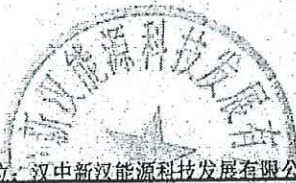 新汉能源科技发展有
位：汉中新汉能源科技发展有限公